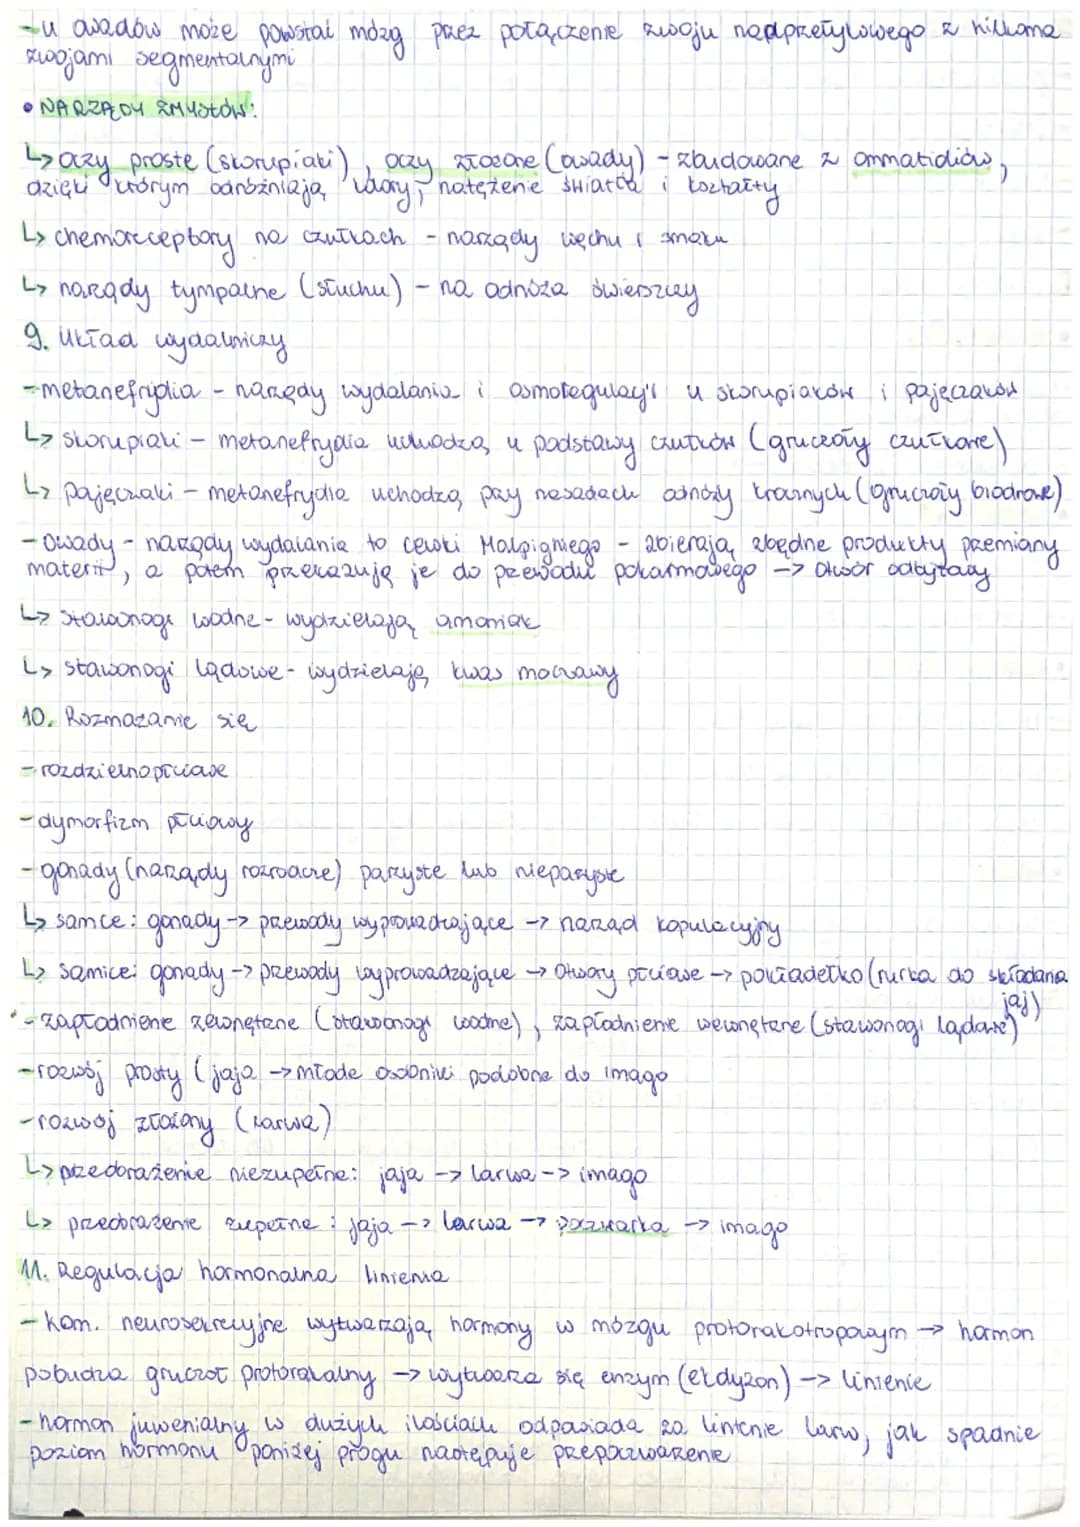 - u owadów może powstać mózg przez połączenie zwoju nadprzełykowego z kilkoma
zwojami segmentalnymi
• NARZĄDY ZMYSŁÓW:
↳ oczy proste (skorupiaki), oczy złożone (owady) - zbudowane z ommatidiów,
dzięki którym odróżniają wzory, natężenie światła i kształty
↳ chemoreceptory na czułkach - narządy węchu i smaku
↳ narządy tympalne (słuchu) - na odnóża świerszczy
9. Układ wydalniczy
- metanefrydia - narządy wydalania i osmoregulacji u skorupiaków i pajęczaków
↳ skorupiaki - metanefrydia uchodzą u podstawy czułków (gruczoły czułkowe)
↳ pajęczaki - metanefrydia uchodzą przy nasadach odnóży krocznych (gruczoły biodrowe)
- owady - narządy wydalania to cewki Malpigiego - zbierają zbędne produkty przemiany
materii, a potem przekazują je do przewodu pokarmowego -> otwór odbytowy
↳ stawonogi wodne - wydzielają amoniak
↳ stawonogi lądowe - wydzielają kwas moczowy
10. Rozmnażanie się
- rozdzielnopłciowe
- dymorfizm płciowy
- gonady (narządy rozrodcze) parzyste lub nieparzyste
↳ samce: gonady -> przewody wyprowadzające -> narząd kopulacyjny
↳ samice: gonady -> przewody wyprowadzające -> otwory płciowe -> pokładełko (rurka do składania
jaj)
- zapłodnienie zewnętrzne (stawonogi wodne), zapłodnienie wewnętrzne (stawonogi lądowe)
- rozwój prosty (jaja -> młode osobniki podobne do imago
- rozwój złożony (larwa)
↳ przeobrażenie niezupełne: jaja -> larwa -> imago
↳ przeobrażenie zupełne: jaja -> larwa -> poczwarka -> imago
11. Regulacja hormonalna linienia
- kom. neurosekrecyjne wytwarzają hormony w mózgu protorakotropowym -> hormon
pobudza gruczoł protorakalny -> wytwarza się enzym (ekdyzon) -> linienie
- hormon juwenialny w dużych ilościach odpowiada za linienie larw, jak spadnie
poziom hormonu poniżej progu następuje przepoczwarzenie